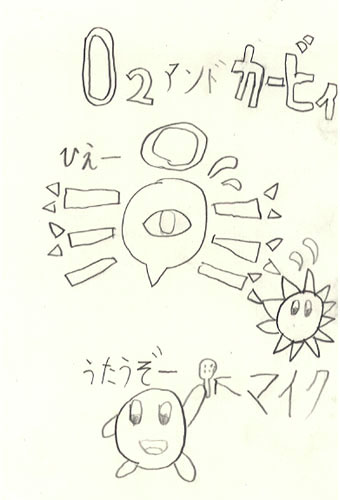 02アンドカービィ
ひえー
うたうぞー
マイク